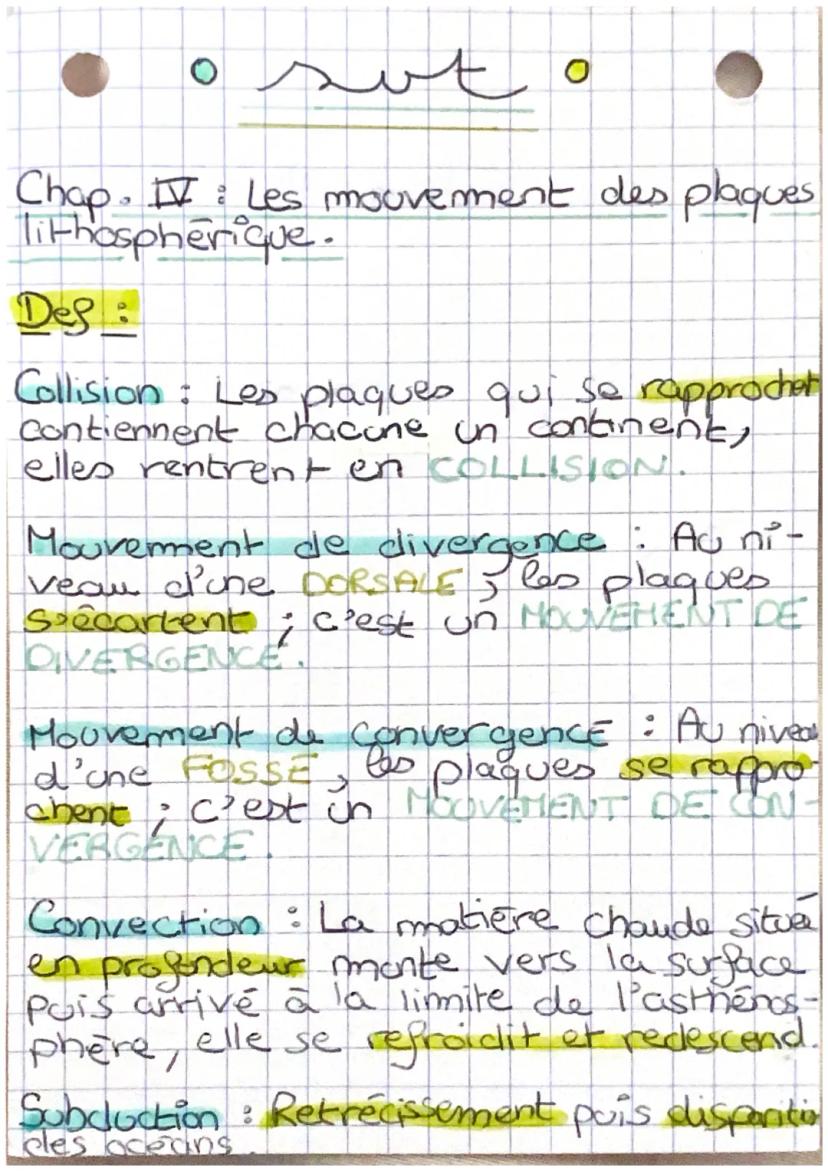 svt
Chap. IV : Les mouvement des plaques
lithosphérique.
Def :
Collision : Les plaques qui se rapprochet
contiennent chacune un continent,
elles rentrent en COLLISION.
Mouvement de divergence : Au ni-
veau d'une DORSALE, les plaques
s'écartent ; c'est un MOUVEMENT DE
DIVERGENCE.
Mouvement de convergence : Au niveau
d'une FOSSE, les plaques se rappro-
chent ; c'est un MOUVEMENT DE CON-
VERGENCE.
Convection : La matière chaude située
en profondeur monte vers la surface
puis arrivé à la limite de l'asthénos-
phère, elle se refroidit et redescend.
Subduction : Retrécissement puis disparitio
des océans.